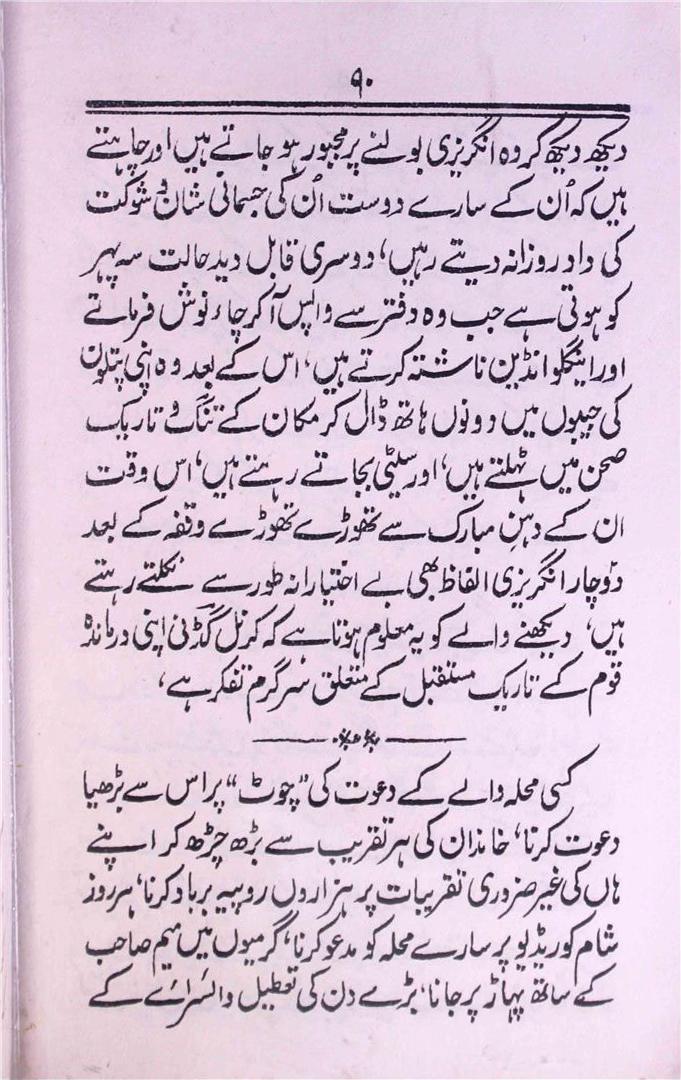 ۹۰
دیکھ دیکھ کر وہ انگریزی بولنے پر مجبور ہو جاتے ہیں اور چاہتے
ہیں کہ اُن کے سارے دوست اُن کی جسمانی شان و شوکت
کی داد روزانہ دیتے رہیں، دوسری قابل دید حالت سہ پہر
کو ہوتی ہے جب وہ دفتر سے واپس آ کر چاء نوش فرماتے
اور اینگلو انڈین ناشتہ کرتے ہیں، اس کے بعد وہ اپنی پتلون
کی جیبوں میں دونوں ہاتھ ڈال کر مکان کے تنگ و تاریک
صحن میں ٹہلتے ہیں، اور سیٹی بجاتے رہتے ہیں، اس وقت
ان کے دہنِ مبارک سے تھوڑے تھوڑے وقفہ کے بعد
دو چار انگریزی الفاظ بھی بے اختیارانہ طور سے نکلتے رہتے
ہیں، دیکھنے والے کو یہ معلوم ہوتا ہے کہ کرنل گڈنی اپنی درماندہ
قوم کے تاریک مستقبل کے متعلق سرگرم تفکر ہے،
کسی محلہ والے کے دعوت کی "چوٹ" پر اس سے بڑھیا
دعوت کرنا، خاندان کی ہر تقریب سے بڑھ چڑھ کر اپنے
ہاں کی غیر ضروری تقریبات پر ہزاروں روپیہ برباد کرنا، ہر روز
شام کو ریڈیو پر سارے محلہ کو مدعو کرنا، گرمیوں میں میم صاحب
کے ساتھ پہاڑ پر جانا، بڑے دن کی تعطیل وائسرائے کے